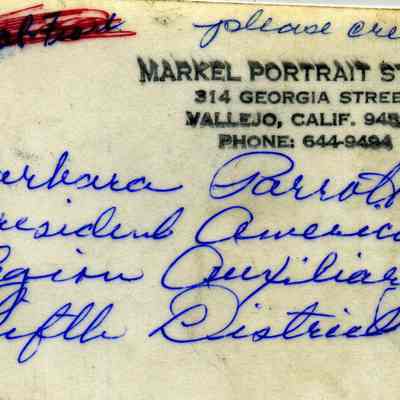 please cre
MARKEL PORTRAIT ST
314 GEORGIA STREE
VALLEJO, CALIF. 945
PHONE: 644-9494
arbara Parrott
resident America
egion Auxiliary
ifth District